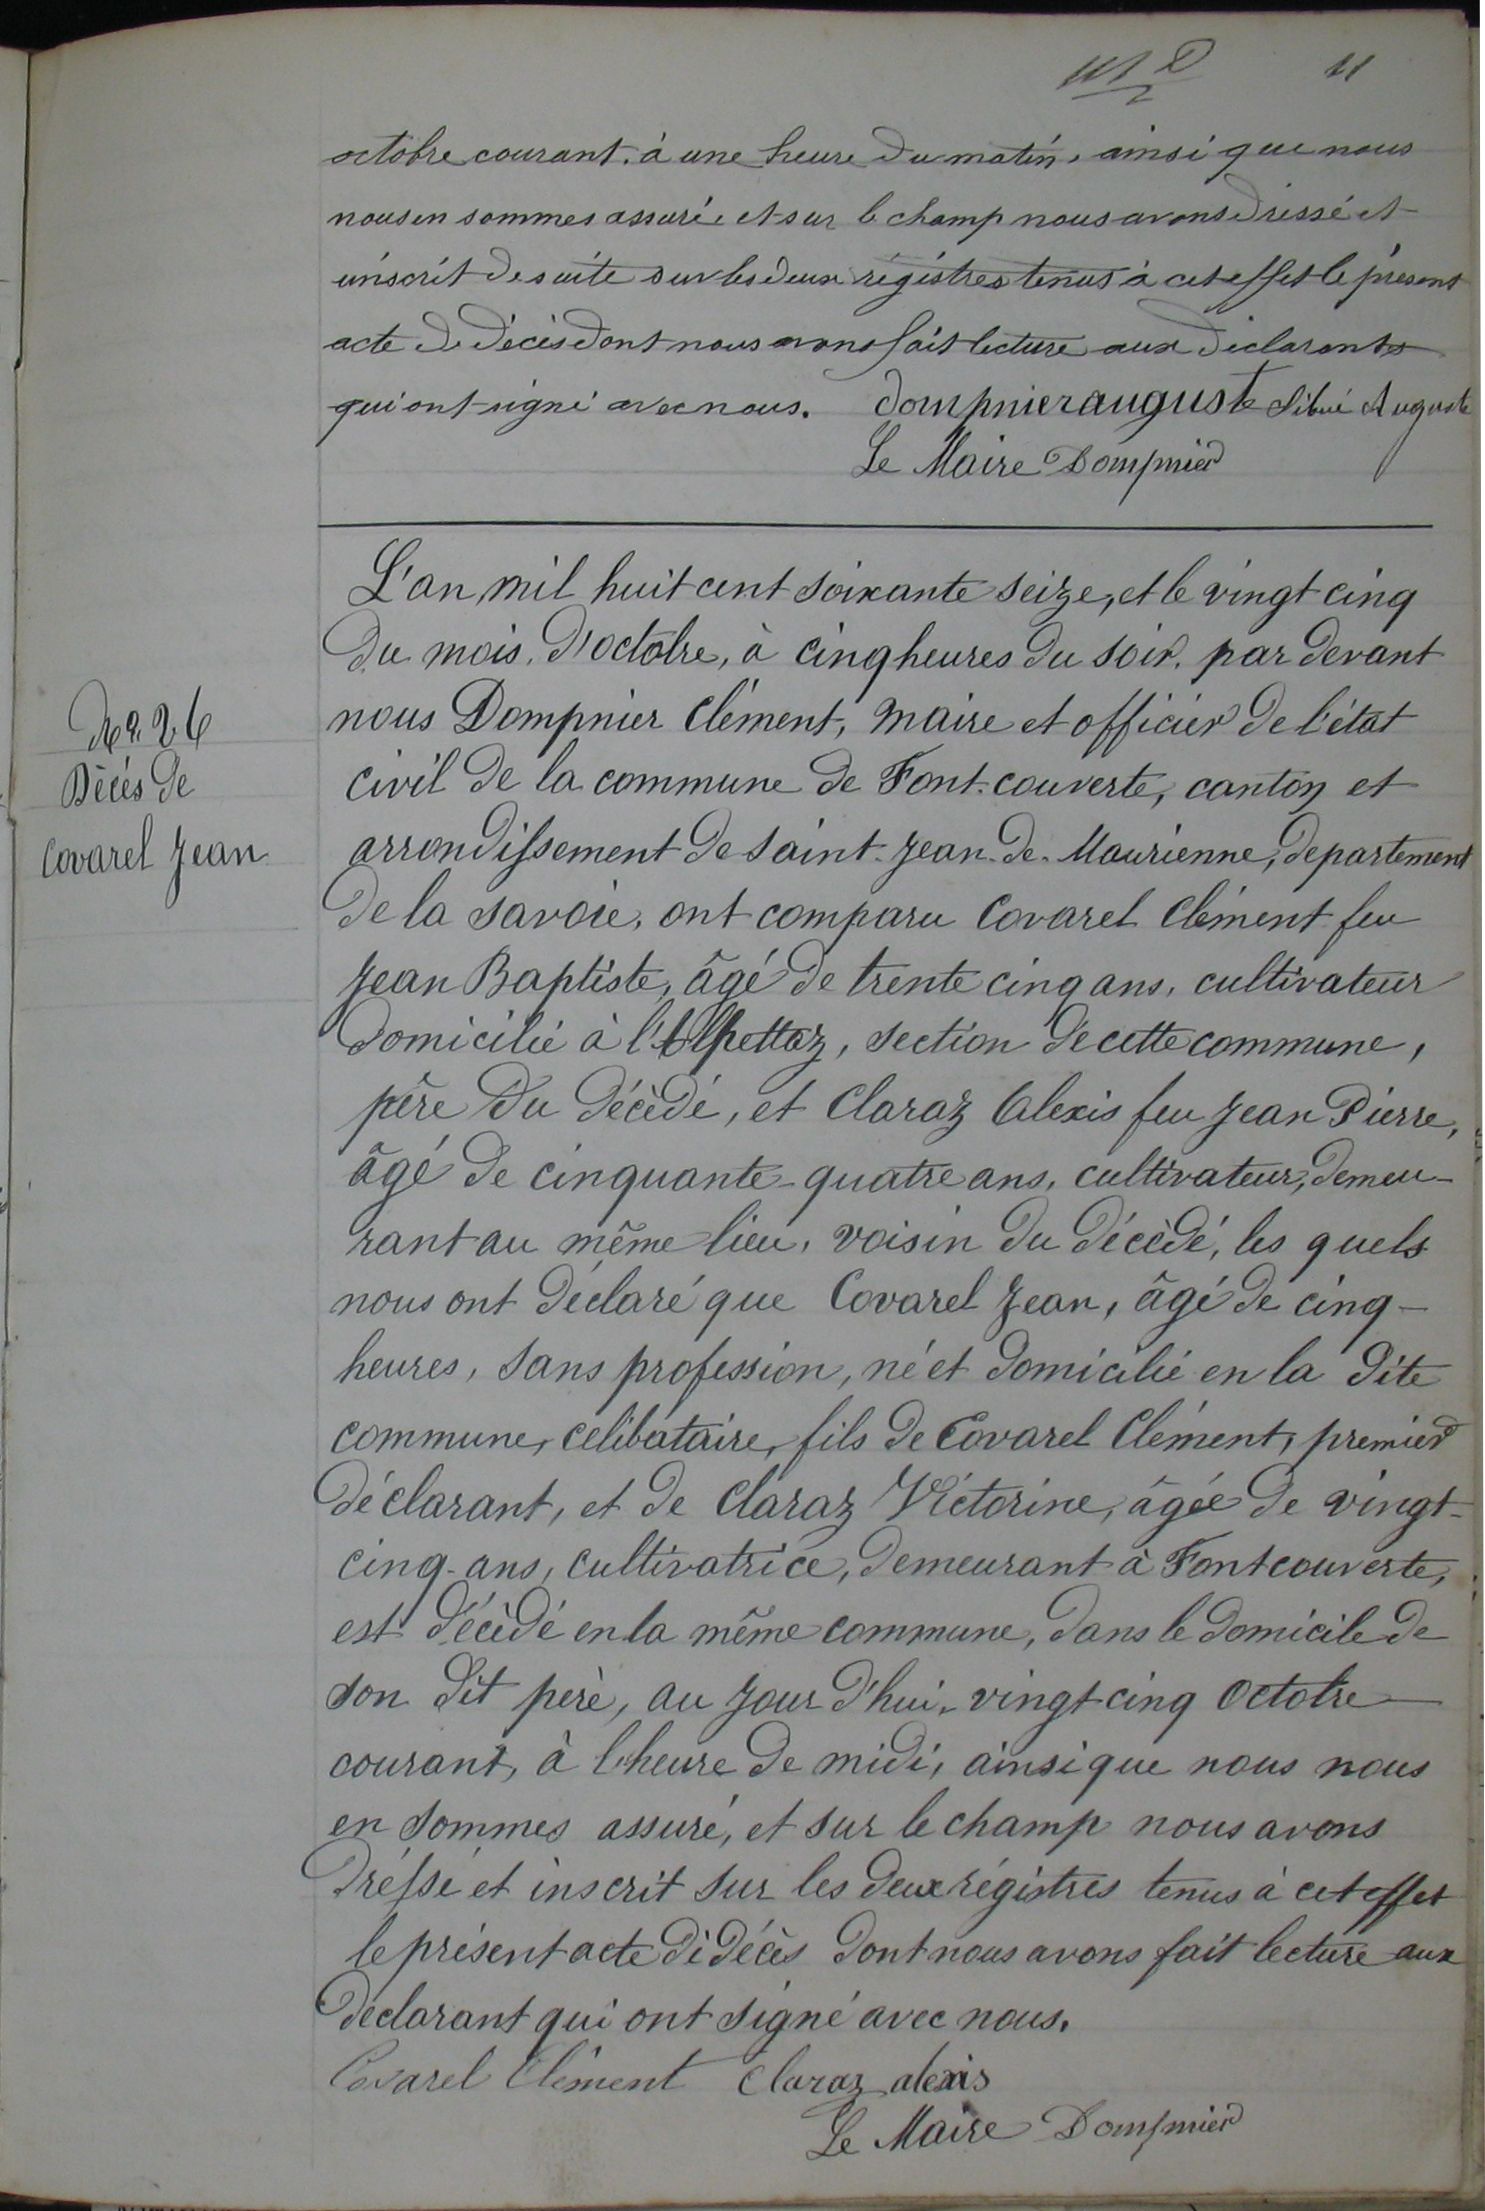 11
octobre courant, à une heure du matin, ainsi que nous
nous en sommes assuré, et sur le champ nous avons dressé et
inscrit de suite sur les deux régistres tenus à cet effet le présent
acte de décès dont nous avons fait lecture aux déclarants
qui ont signé avec nous. dompnier auguste Sibué Auguste
Le Maire Dompnier
L'an mil huit cent soixante seize, et le vingt cinq
du mois d'octobre, à cinq heures du soir, par devant
nous Dompnier Clément, maire et officier de l'état
civil de la commune de Font-couverte, canton et
arrondissement de Saint-Jean-de-Maurienne, departement
de la Savoie, ont comparu Covarel Clément feu
Jean Baptiste, âgé de trente cinq ans, cultivateur
domicilié à l'Alpettaz, section de cette commune,
père du décèdé, et Claraz Alexis feu Jean Pierre,
âgé de cinquante-quatre ans, cultivateur, demeu-
rant au même lieu, voisin du décèdé, les quels
nous ont déclaré que Covarel Jean, âgé de cinq-
heures, sans profession, né et domicilié en la dite
commune, celibataire, fils de Covarel Clément, premier
déclarant, et de Claraz Victorine, âgée de vingt-
cinq-ans, cultivatrice, demeurant à Fontcouverte,
est décèdé en la même commune, dans le domicile de
son dit père, au jour d'hui, vingt cinq Octobre
courant, à l'heure de midi, ainsi que nous nous
en sommes assuré, et sur le champ nous avons
dressé et inscrit sur les deux régistres tenus à cet effet
le présent acte de décès dont nous avons fait lecture aux
déclarant qui ont signé avec nous.
Covarel Clément Claraz alexis
Le Maire Dompnier
No. 26
Décès de
Covarel Jean